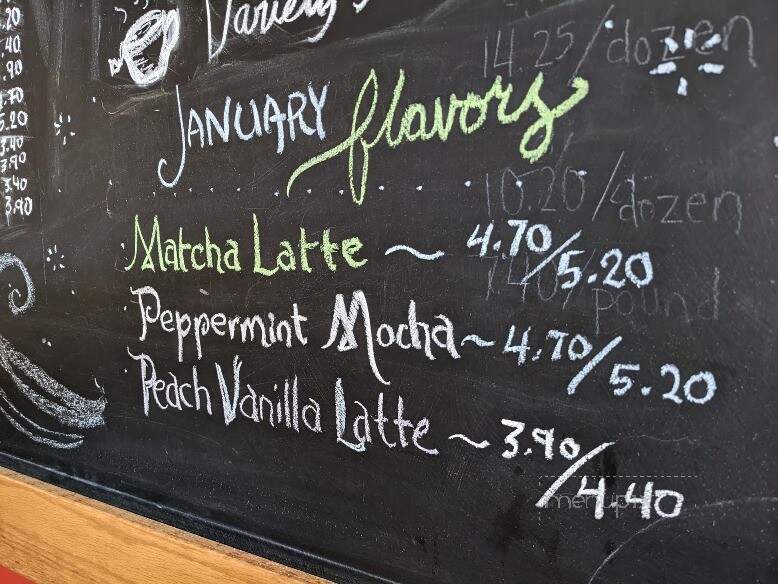 .20
.40
.90
.70
5.20
3.40
3.90
3.40
3.90
Variety
14.25/dozen
JANUARY flavors
10.20/dozen
Matcha Latte ~ 4.70/5.20
7.40/pound
Peppermint Mocha ~ 4.70/5.20
Peach Vanilla Latte ~ 3.90/4.40
menupix